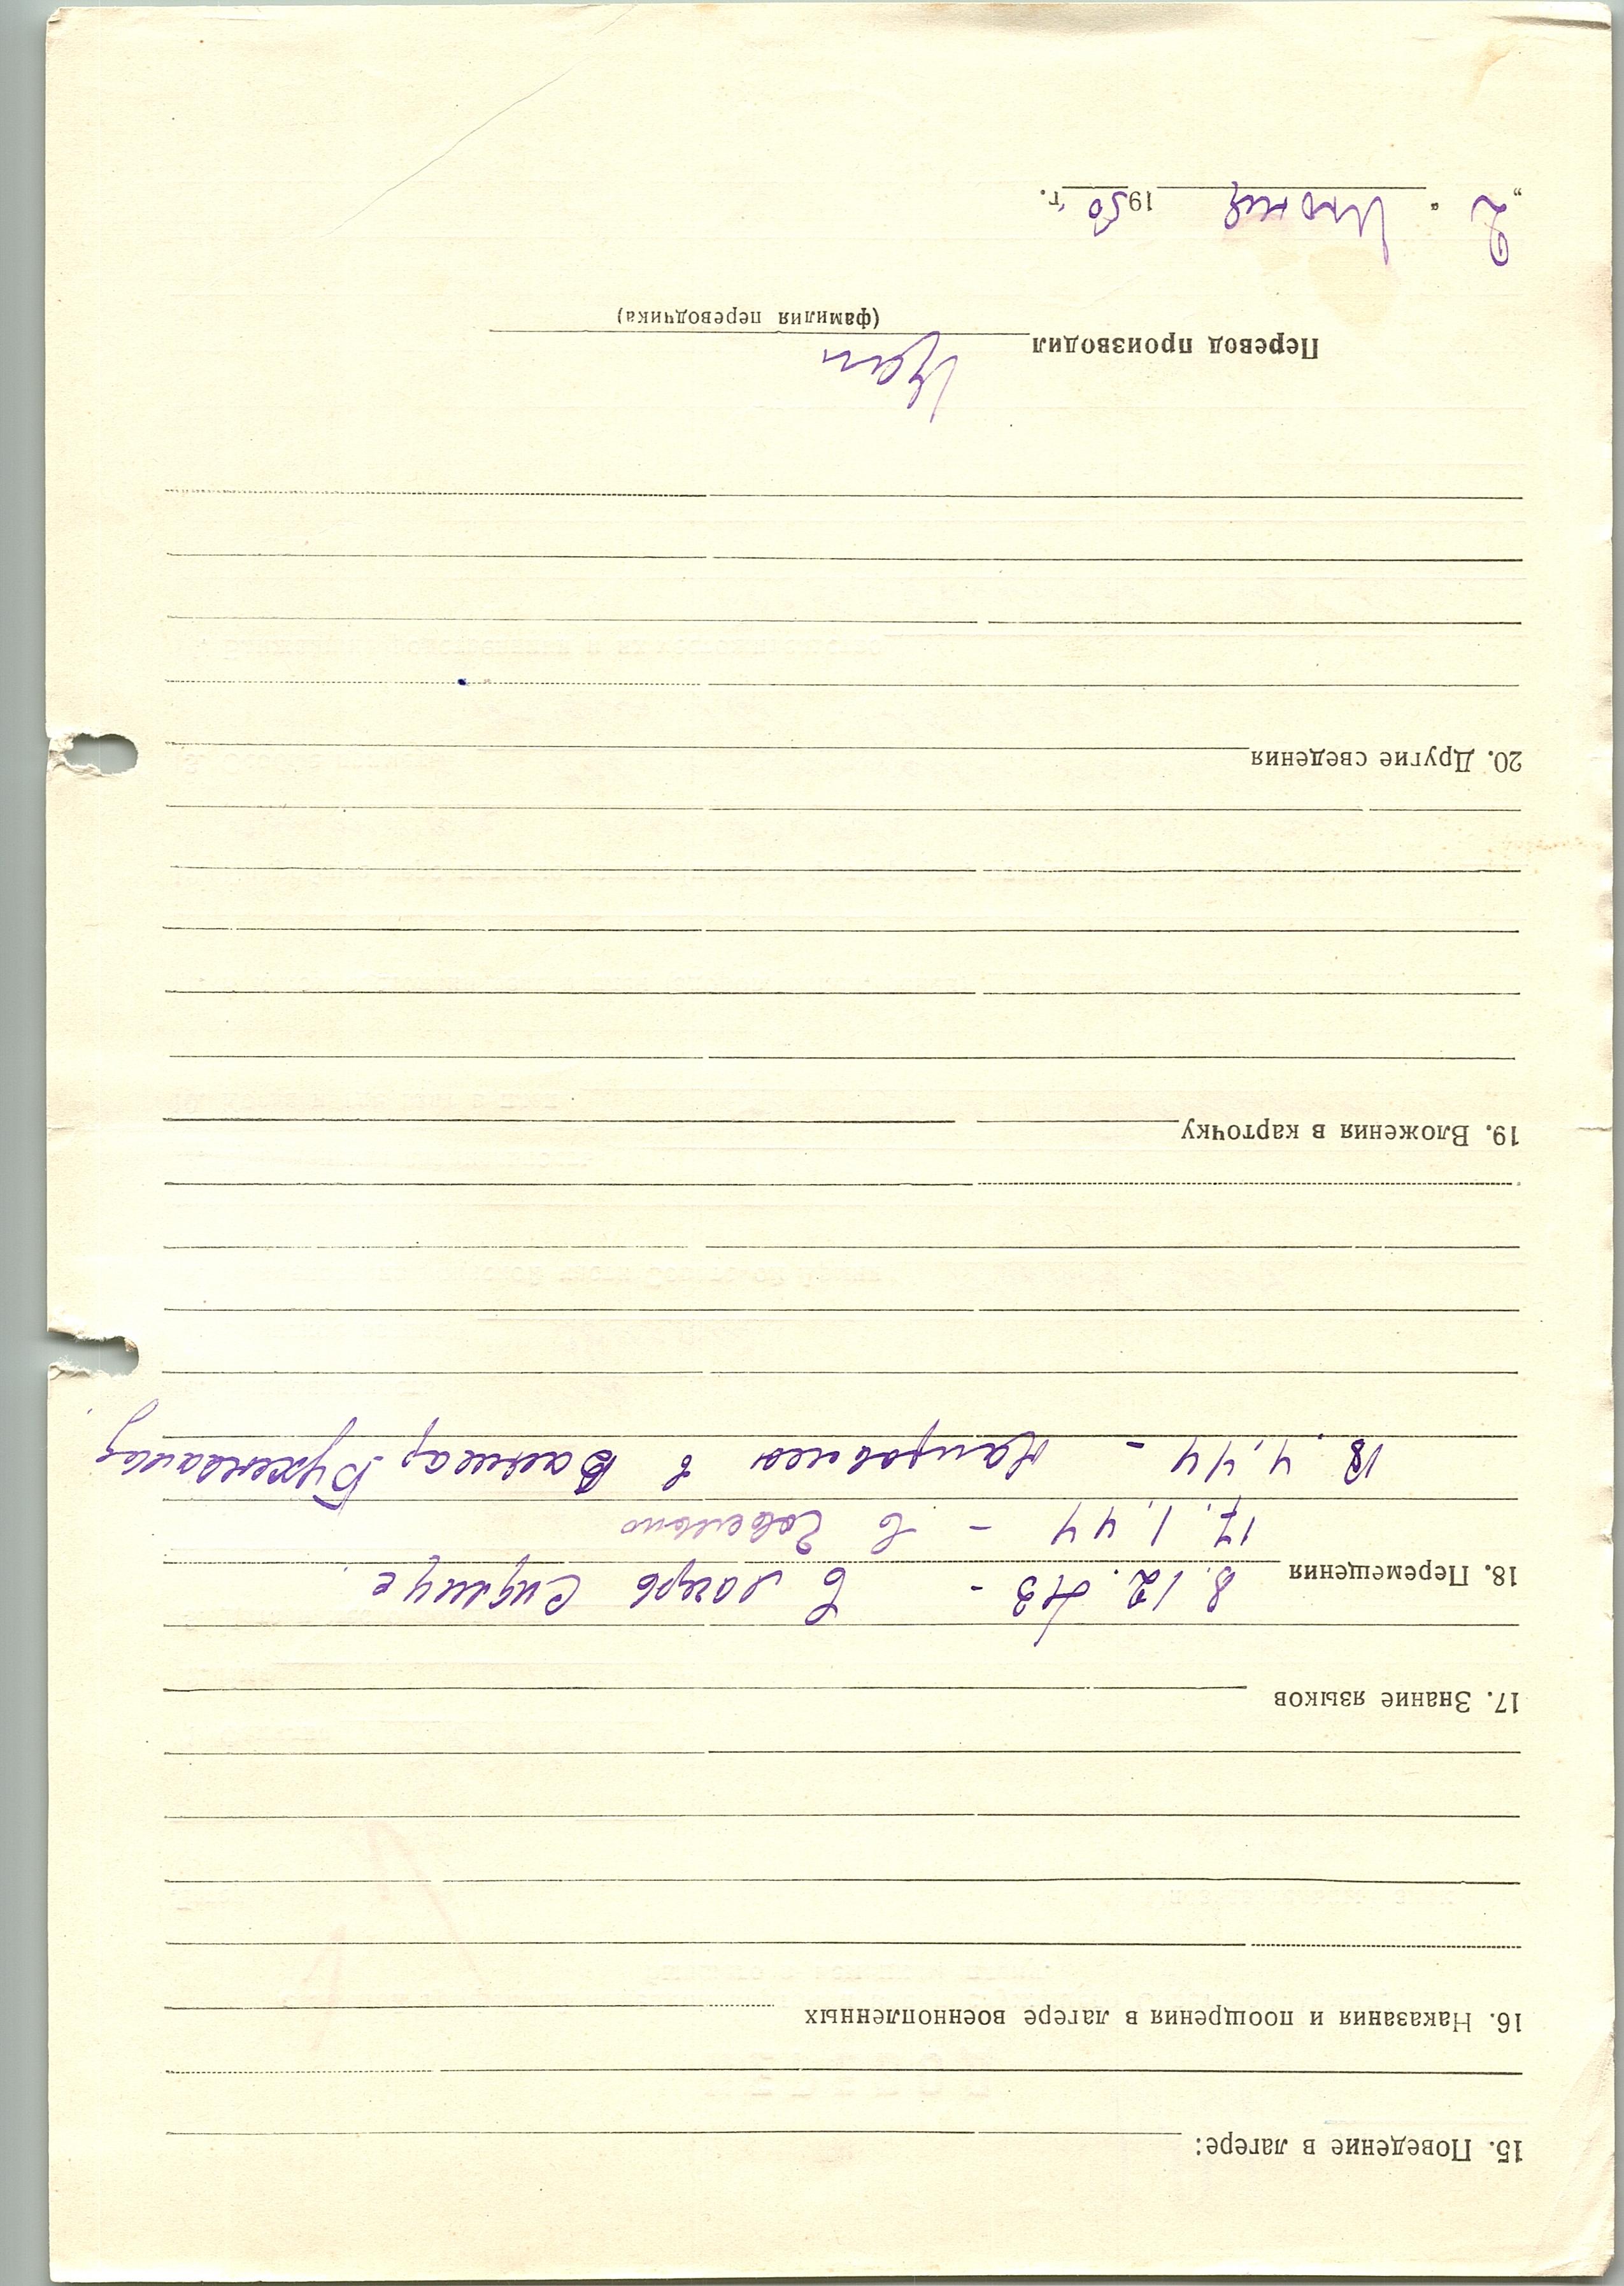 15. Поведение в лагере:
16. Наказания и поощрения в лагере военнопленных
17. Знание языков
18. Перемещения 8.12.43 - в лагерь
17.1.44 - в
18.4.44 - в Бухенвальд
19. Вложения в карточку
20. Другие сведения
Перевод производил
(фамилия переводчика)
„2“ Июня 1950 г.